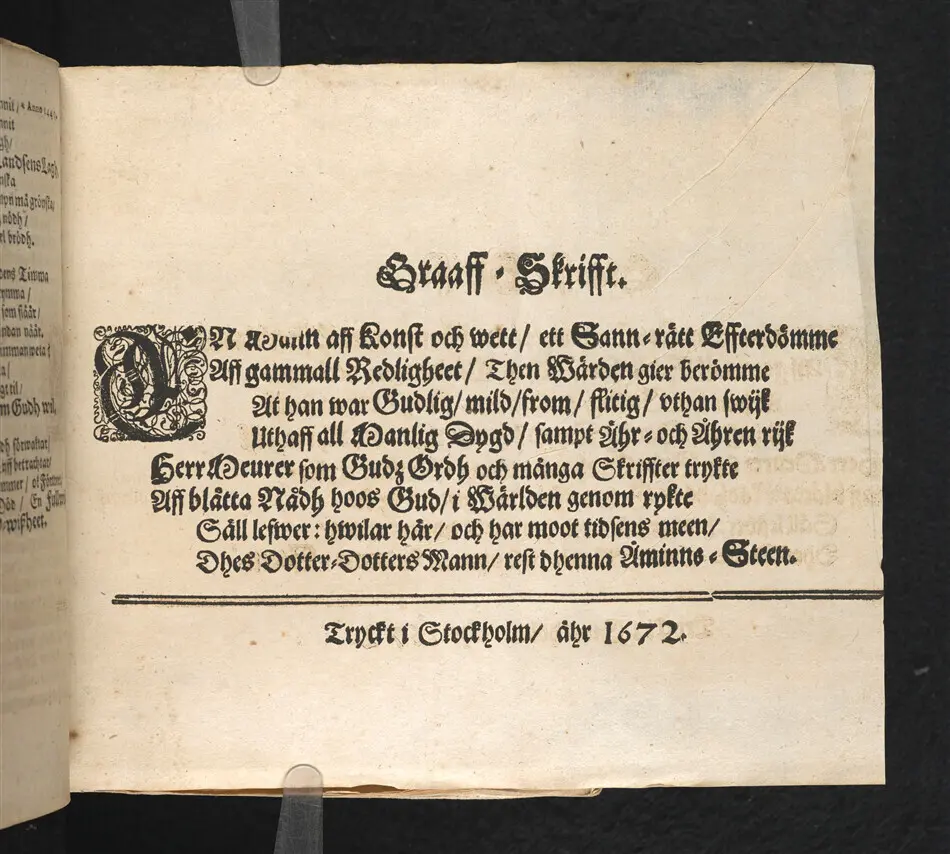 Anno
andsens Lagh
nödh /
brödh.
Timma
som
til /
m Gudh wil,
förwaltar /
betrachtar /
En
wißheet.
Graaff - Skrifft.
EN Mann aff Konst och wett / ett Sann-rätt Effterdömme
Aff gammall Redligheet / Then Wärden gier berömme
At han war Gudlig / mild / from / flitig / vthan swijk
Uthaff all Manlig Dygd / sampt Åhr- och Åhren rijk
Herr Meurer som Gudz Ordh och många Skriffter trykte
Aff blåtta Nådh hoos Gud / i Wärlden genom rykte
Säll lefwer: hwilar här / och har moot tidsens meen /
Dhes Dotter-Dotters Mann / rest dhenna Åminns-Steen.
Tryckt i Stockholm / åhr 1672.